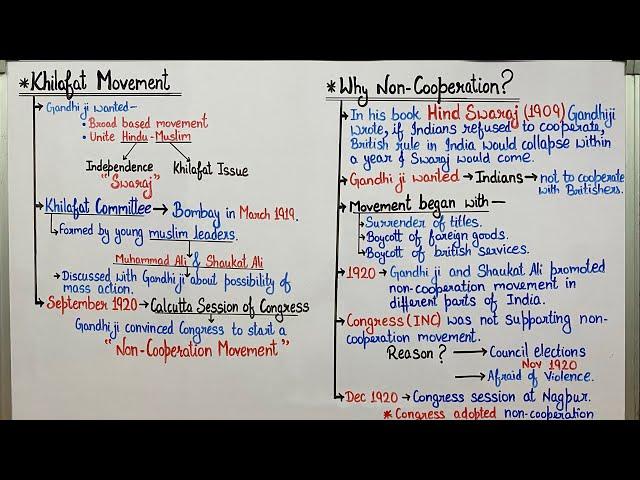 * Khilafat Movement
Gandhi ji wanted—
• Broad based movement
• Unite Hindu-Muslim
Independence
"Swaraj"
Khilafat Issue
Khilafat Committee → Bombay in March 1919.
Formed by young muslim leaders.
Muhammad Ali & Shaukat Ali
→ Discussed with Gandhi ji about possibility of
mass action.
September 1920 → Calcutta Session of Congress
Gandhi ji convinced Congress to start a
"Non-Cooperation Movement"
* Why Non-Cooperation?
In his book Hind Swaraj (1909) Gandhiji
wrote, if Indians refused to cooperate,
British rule in India would collapse within
a year & Swaraj would come.
Gandhi ji wanted → Indians → not to cooperate
with Britishers.
Movement began with—
→ Surrender of titles.
→ Boycott of foreign goods.
→ Boycott of british services.
1920 → Gandhi ji and Shaukat Ali promoted
non-cooperation movement in
different parts of India.
Congress (INC) was not supporting non-
cooperation movement.
Reason? → Council elections
Nov 1920
→ Afraid of Violence.
Dec 1920 → Congress session at Nagpur.
* Congress adopted non-cooperation